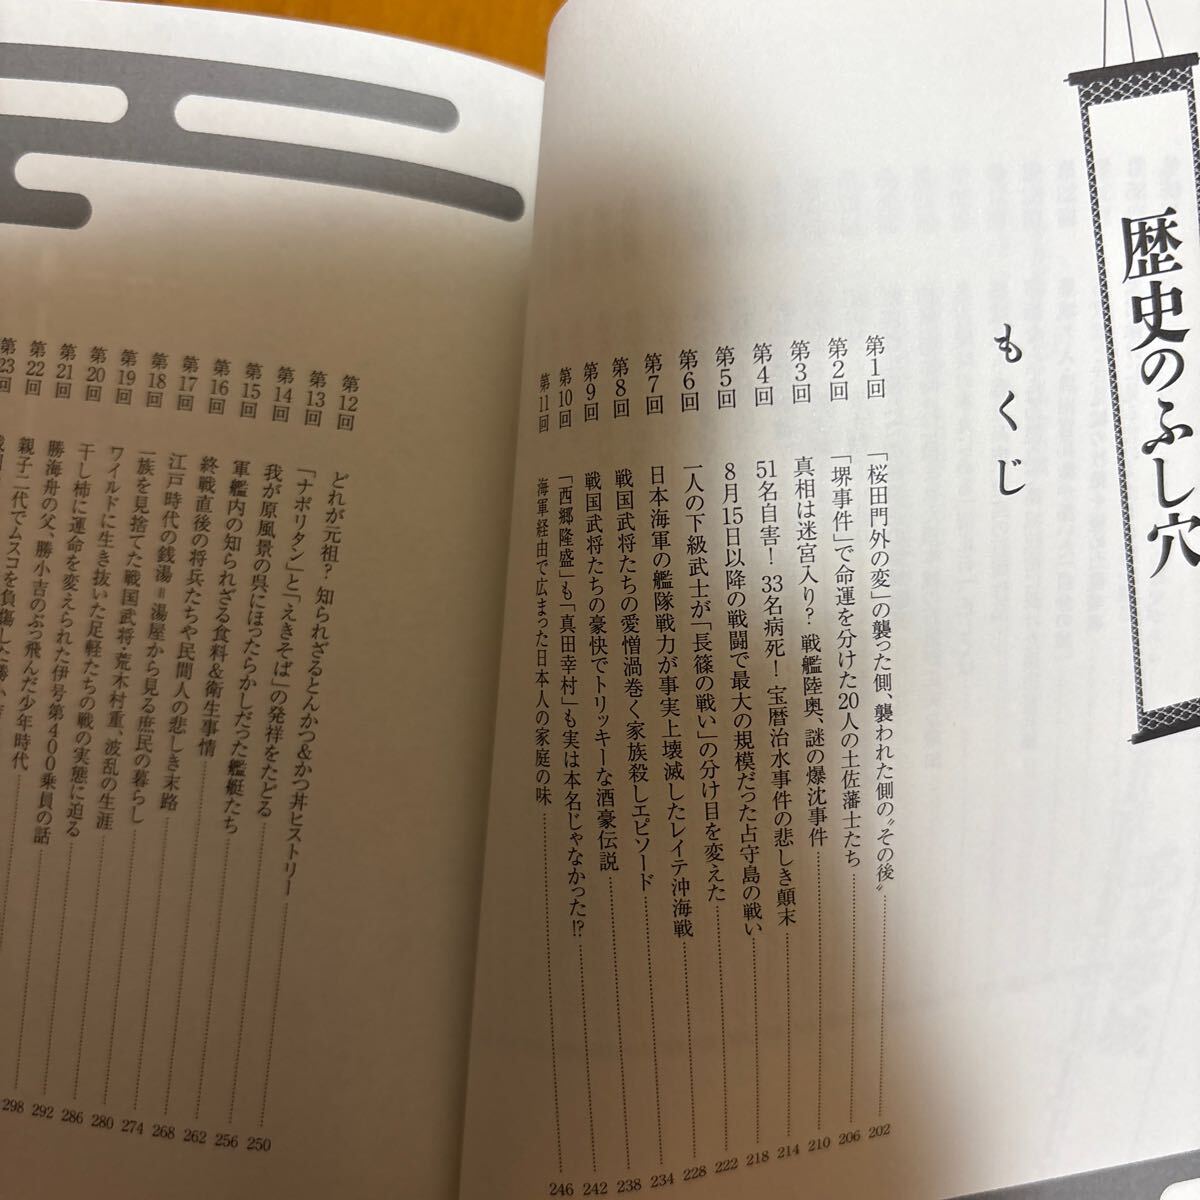 歴史のふし穴
もくじ
第1回 「桜田門外の変」の襲った側、襲われた側の〝その後〟 202
第2回 「堺事件」で命運を分けた20人の土佐藩士たち 206
第3回 真相は迷宮入り? 戦艦陸奥、謎の爆沈事件 210
第4回 51名自害! 33名病死! 宝暦治水事件の悲しき顛末 214
第5回 8月15日以降の戦闘で最大の規模だった占守島の戦い 218
第6回 一人の下級武士が「長篠の戦い」の分け目を変えた 222
第7回 日本海軍の艦隊戦力が事実上壊滅したレイテ沖海戦 228
第8回 戦国武将たちの愛憎渦巻く家族殺しエピソード 234
第9回 戦国武将たちの豪快でトリッキーな酒豪伝説 238
第10回 「西郷隆盛」も「真田幸村」も実は本名じゃなかった!? 242
第11回 海軍経由で広まった日本人の家庭の味 246
第12回 どれが元祖? 知られざるとんかつ&かつ丼ヒストリー 250
第13回 「ナポリタン」と「えきそば」の発祥をたどる 256
第14回 我が原風景の呉にほったらかしだった艦艇たち 262
第15回 軍艦内の知られざる食料&衛生事情 268
第16回 終戦直後の将兵たちや民間人の悲しき末路 274
第17回 江戸時代の銭湯=湯屋から見る庶民の暮らし 280
第18回 一族を見捨てた戦国武将・荒木村重、波乱の生涯 286
第19回 ワイルドに生き抜いた足軽たちの戦の実態に迫る 292
第20回 干し柿に運命を変えられた伊号第400乗員の話 298
第21回 勝海舟の父、勝小吉のぶっ飛んだ少年時代
第22回 親子二代でムスコを負傷した勝
第23回